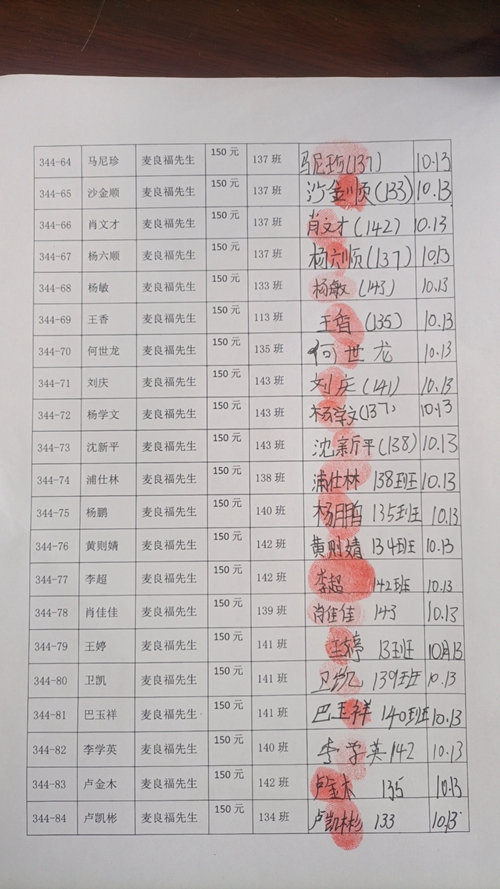 344-64 马尼珍 麦良福先生 150 元 137 班 马尼珍(137) 10.13
344-65 沙金顺 麦良福先生 150 元 137 班 沙金顺(133) 10.13
344-66 肖文才 麦良福先生 150 元 137 班 肖文才(142) 10.13
344-67 杨六顺 麦良福先生 150 元 137 班 杨六顺(137) 10.13
344-68 杨敏 麦良福先生 150 元 133 班 杨敏(143) 10.13
344-69 王香 麦良福先生 150 元 113 班 王香(135) 10.13
344-70 何世龙 麦良福先生 150 元 135 班 何世龙 10.13
344-71 刘庆 麦良福先生 150 元 143 班 刘庆(141) 10.13
344-72 杨学文 麦良福先生 150 元 143 班 杨学文(137) 10.13
344-73 沈新平 麦良福先生 150 元 143 班 沈新平(138) 10.13
344-74 浦仕林 麦良福先生 150 元 138 班 浦仕林 138班 10.13
344-75 杨鹏 麦良福先生 150 元 140 班 杨鹏 135班 10.13
344-76 黄则婧 麦良福先生 150 元 142 班 黄则婧 134班 10.13
344-77 李超 麦良福先生 150 元 142 班 李超 142班 10.13
344-78 肖佳佳 麦良福先生 150 元 139 班 肖佳佳 143 10.13
344-79 王婷 麦良福先生 150 元 141 班 王婷 13班 10月13
344-80 卫凯 麦良福先生 150 元 141 班 卫凯 139班 10.13
344-81 巴玉祥 麦良福先生 150 元 141 班 巴玉祥 140班 10.13
344-82 李学英 麦良福先生 150 元 140 班 李学英 142 10.13
344-83 卢金木 麦良福先生 150 元 142 班 卢金木 135 10.13
344-84 卢凯彬 麦良福先生 150 元 134 班 卢凯彬 133 10.13